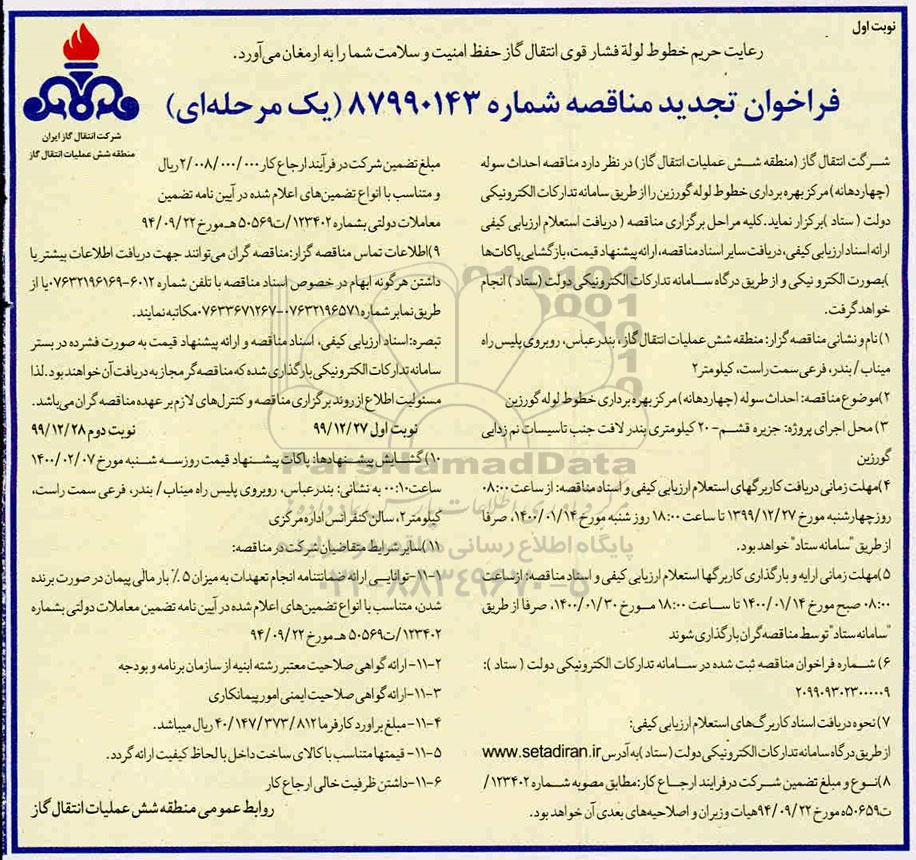 نوبت اول
رعایت حریم خطوط لولۀ فشار قوی انتقال گاز حفظ امنیت و سلامت شما را به ارمغان می‌آورد.
فراخوان تجدید مناقصه شماره ۸۷۹۹۰۱۴۳ (یک مرحله‌ای)
شرکت انتقال گاز ایران
منطقه شش عملیات انتقال گاز
شرگت انتقال گاز (منطقه شش عملیات انتقال گاز) در نظر دارد مناقصه احداث سوله
(چهاردهانه) مرکز بهره برداری خطوط لوله گورزین را از طریق سامانه تدارکات الکترونیکی
دولت ( ستاد )برگزار نماید. کلیه مراحل برگزاری مناقصه ( دریافت استعلام ارزیابی کیفی
ارائه اسناد ارزیابی کیفی، دریافت سایر اسناد مناقصه، ارائه پیشنهاد قیمت، بازگشایی پاکات‌ها
)بصورت الکترونیکی و از طریق درگاه سامانه تدارکات الکترونیکی دولت (ستاد ) انجام
خواهد گرفت.
۱) نام و نشانی مناقصه گزار: منطقه شش عملیات انتقال گاز ، بندرعباس، روبروی پلیس راه
میناب / بندر، فرعی سمت راست، کیلومتر ۲
۲)موضوع مناقصه: احداث سوله (چهاردهانه) مرکز بهره برداری خطوط لوله گورزین
۳) محل اجرای پروژه: جزیره قشم- ۲۰ کیلومتری بندر لافت جنب تاسیسات نم زدایی
گورزین
۴)مهلت زمانی دریافت کاربرگهای استعلام ارزیابی کیفی و اسناد مناقصه: از ساعت ۰۸:۰۰
روز چهارشنبه مورخ ۱۳۹۹/۱۲/۲۷ تا ساعت ۱۸:۰۰ روز شنبه مورخ ۱۴۰۰/۰۱/۱۴، صرفا
از طریق "سامانه ستاد" خواهد بود.
۵)مهلت زمانی ارایه و بارگذاری کاربرگها استعلام ارزیابی کیفی و اسناد مناقصه: ازساعت
۰۸:۰۰ صبح مورخ ۱۴۰۰/۰۱/۱۴ تا ساعت ۱۸:۰۰ مورخ ۱۴۰۰/۰۱/۳۰، صرفا از طریق
"سامانه ستاد" توسط مناقصه گران بارگذاری شوند
۶) شماره فراخوان مناقصه ثبت شده در سامانه تدارکات الکترونیکی دولت ( ستاد ):
۲۰۹۹۰۹۳۰۲۳۰۰۰۰۰۹
۷) نحوه دریافت اسناد کاربرگ‌های استعلام ارزیابی کیفی:
از طریق درگاه سامانه تدارکات الکترونیکی دولت ( ستاد )به آدرس www.setadiran.ir
۸)نوع و مبلغ تضمین شرکت در فرایند ارجاع کار: مطابق مصوبه شماره ۱۲۳۴۰۲/
ت۵۰۶۵۹ه مورخ ۹۴/۰۹/۲۲ هیات وزیران و اصلاحیه‌های بعدی آن خواهد بود.
مبلغ تضمین شرکت در فرآیند ارجاع کار ۲/۰۰۸/۰۰۰/۰۰۰ ریال
و متناسب با انواع تضمین‌های اعلام شده در آیین نامه تضمین
معاملات دولتی بشماره ۱۲۳۴۰۲/ت۵۰۵۶۹ هـ مورخ ۹۴/۰۹/۲۲
۹)اطلاعات تماس مناقصه گزار: مناقصه گران می‌توانند جهت دریافت اطلاعات بیشتر یا
داشتن هرگونه ابهام در خصوص اسناد مناقصه با تلفن شماره ۶۰۱۲-۰۷۶۳۲۱۹۶۱۶۹ یا از
طریق نمابر شماره ۰۷۶۳۲۱۹۶۵۷۱-۰۷۶۳۳۶۷۱۲۶۷ مکاتبه نمایند.
تبصره: اسناد ارزیابی کیفی، اسناد مناقصه و ارائه پیشنهاد قیمت به صورت فشرده در بستر
سامانه تدارکات الکترونیکی بارگذاری شده که مناقصه گر مجاز به دریافت آن خواهند بود. لذا
مسئولیت اطلاع از روند برگزاری مناقصه و کنترل‌های لازم بر عهده مناقصه گران می‌باشد.
نوبت اول ۹۹/۱۲/۲۷ نوبت دوم ۹۹/۱۲/۲۸
۱۰) گشایش پیشنهادها: پاکات پیشنهاد قیمت روز سه شنبه مورخ ۱۴۰۰/۰۲/۰۷
ساعت ۰۰:۱۰ به نشانی: بندرعباس، روبروی پلیس راه میناب / بندر، فرعی سمت راست،
کیلومتر ۲، سالن کنفرانس اداره مرکزی
۱۱)سایر شرایط متقاضیان شرکت در مناقصه:
۱-۱۱- توانایی ارائه ضمانتنامه انجام تعهدات به میزان ۵٪ بار مالی پیمان در صورت برنده
شدن، متناسب با انواع تضمین‌های اعلام شده در آیین نامه تضمین معاملات دولتی بشماره
۱۲۳۴۰۲/ت۵۰۵۶۹ هـ مورخ ۹۴/۰۹/۲۲
۲-۱۱- ارائه گواهی صلاحیت معتبر رشته ابنیه از سازمان برنامه و بودجه
۳-۱۱-ارائه گواهی صلاحیت ایمنی امور پیمانکاری
۴-۱۱- مبلغ براورد کارفرما ۴۰/۱۴۷/۳۷۳/۸۱۲ ریال میباشد.
۵-۱۱- قیمتها متناسب با کالای ساخت داخل با لحاظ کیفیت ارائه گردد.
۶-۱۱-داشتن ظرفیت خالی ارجاع کار
روابط عمومی منطقه شش عملیات انتقال گاز
ParsNamadData
پایگاه اطلاع رسانی
۰۲۱-۸۸۳۴۹۶۷۰-۵